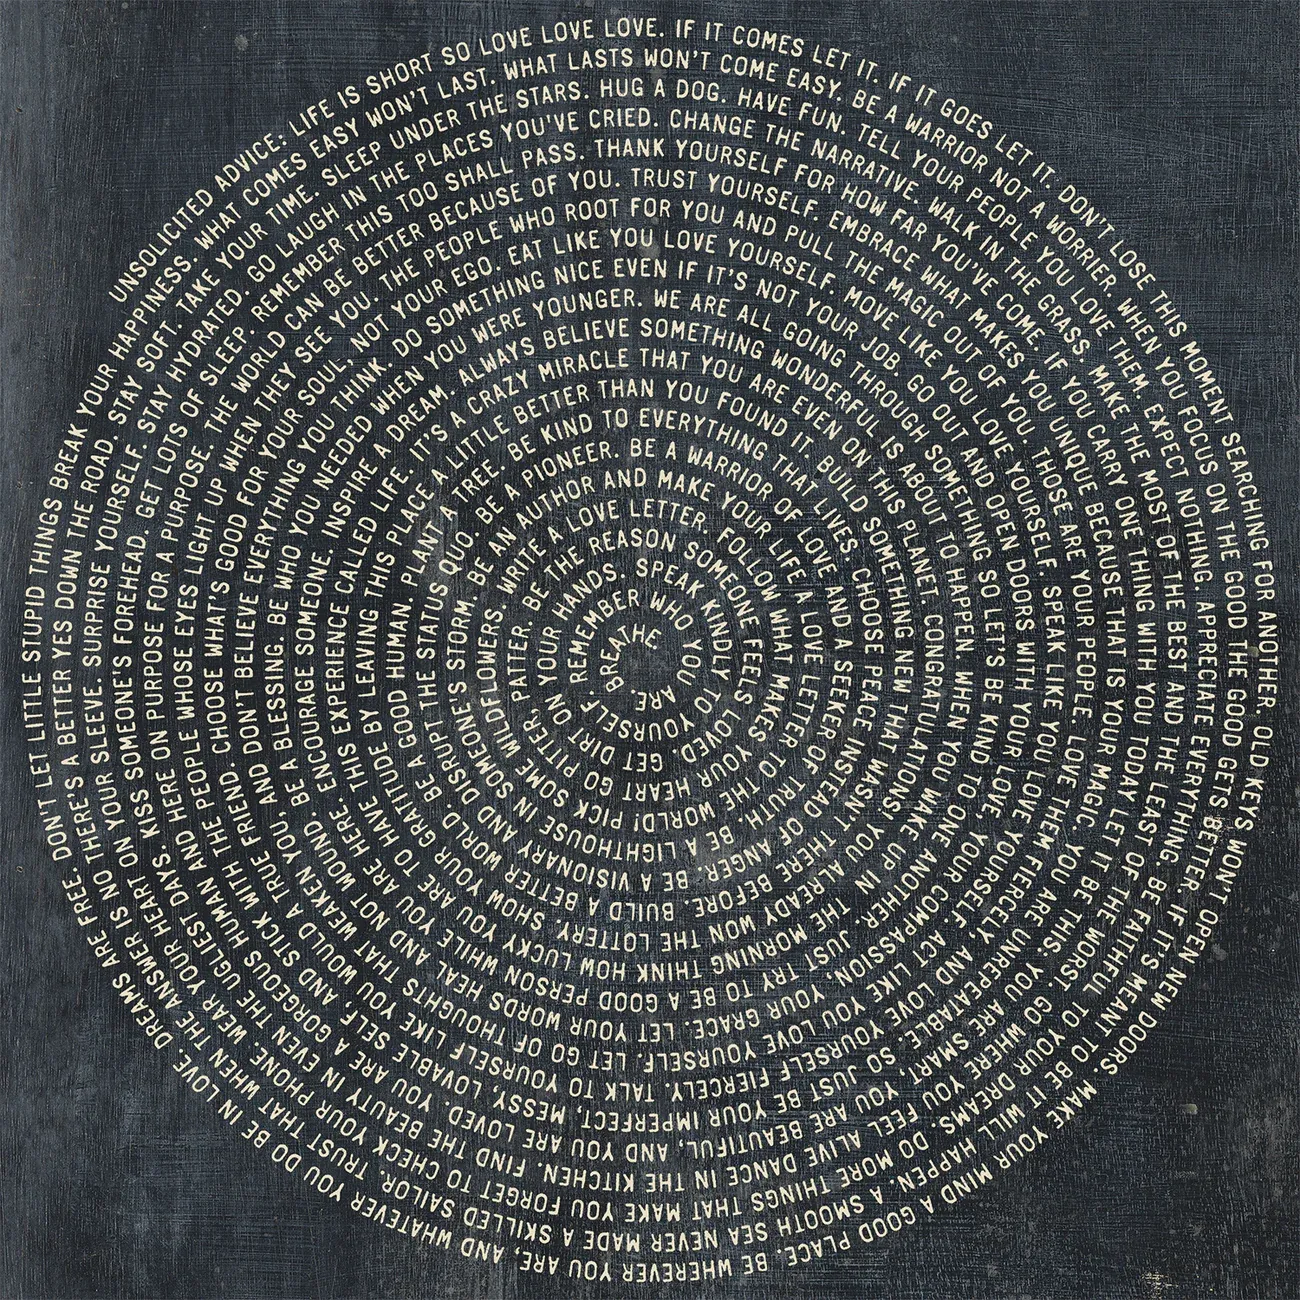 UNSOLICITED ADVICE: LIFE IS SHORT SO LOVE LOVE LOVE. IF IT COMES LET IT. IF IT GOES LET IT. DON'T LOSE THIS MOMENT SEARCHING FOR ANOTHER. OLD KEYS WON'T OPEN NEW DOORS. MAKE YOUR MIND A GOOD PLACE. BE WHEREVER YOU ARE, AND WHATEVER YOU DO BE IN LOVE. DREAMS ARE FREE. DON'T LET LITTLE STUPID THINGS BREAK YOUR HAPPINESS.
WHAT COMES EASY WON'T LAST. WHAT LASTS WON'T COME EASY. BE A WARRIOR NOT A WORRIER. WHEN YOU FOCUS ON THE GOOD THE GOOD GETS BETTER. IF IT'S MEANT TO BE IT WILL HAPPEN. A SMOOTH SEA NEVER MADE A SKILLED SAILOR. TRUST THAT WHEN THE ANSWER IS NO THERE'S A BETTER YES DOWN THE ROAD. STAY SOFT.
TAKE YOUR TIME. SLEEP UNDER THE STARS. HUG A DOG. HAVE FUN. TELL YOUR PEOPLE YOU LOVE THEM. EXPECT NOTHING. APPRECIATE EVERYTHING. BE FAITHFUL TO YOUR DREAMS. DO MORE THINGS THAT MAKE YOU FORGET TO CHECK YOUR PHONE. WEAR YOUR HEART ON YOUR SLEEVE. SURPRISE YOURSELF. STAY HYDRATED.
GO LAUGH IN THE PLACES YOU'VE CRIED. CHANGE THE NARRATIVE. WALK IN THE GRASS. MAKE THE MOST OF THE BEST AND THE LEAST OF THE WORST. GO WHERE YOU FEEL ALIVE DANCE IN THE KITCHEN. FIND THE BEAUTY IN EVEN THE UGLIEST DAYS. KISS SOMEONE'S FOREHEAD. GET LOTS OF SLEEP.
REMEMBER THIS TOO SHALL PASS. THANK YOURSELF FOR HOW FAR YOU'VE COME. IF YOU CARRY ONE THING WITH YOU TODAY LET IT BE THIS: YOU ARE SMART, YOU ARE BEAUTIFUL, AND YOU ARE LOVED. YOU ARE A GORGEOUS HUMAN AND HERE ON PURPOSE FOR A PURPOSE.
THE WORLD CAN BE BETTER BECAUSE OF YOU. TRUST YOURSELF. EMBRACE WHAT MAKES YOU UNIQUE BECAUSE THAT IS YOUR MAGIC. YOU ARE UNREPEATABLE. SO JUST BE YOUR IMPERFECT, MESSY, LOVABLE SELF, AND STICK WITH THE PEOPLE WHOSE EYES LIGHT UP WHEN THEY SEE YOU.
THE PEOPLE WHO ROOT FOR YOU AND PULL THE MAGIC OUT OF YOU. THOSE ARE YOUR PEOPLE. LOVE THEM FIERCELY, AND LOVE YOURSELF FIERCELY. TALK TO YOURSELF LIKE YOU WOULD A TRUE FRIEND. CHOOSE WHAT'S GOOD FOR YOUR SOUL, NOT YOUR EGO.
EAT LIKE YOU LOVE YOURSELF. MOVE LIKE YOU LOVE YOURSELF. SPEAK LIKE YOU LOVE YOURSELF. ACT LIKE YOU LOVE YOURSELF. LET GO OF THOUGHTS THAT WEAKEN YOU, AND DON'T BELIEVE EVERYTHING YOU THINK.
DO SOMETHING NICE EVEN IF IT'S NOT YOUR JOB. GO OUT AND OPEN DOORS WITH YOUR LOVE, YOUR COMPASSION, YOUR GRACE. LET YOUR WORDS HEAL AND NOT WOUND. BE A BLESSING. BE WHO YOU NEEDED WHEN YOU WERE YOUNGER.
WE ARE ALL GOING THROUGH SOMETHING SO LET'S BE KIND TO ONE ANOTHER. JUST TRY TO BE A GOOD PERSON WHILE YOU ARE HERE. ENCOURAGE SOMEONE. INSPIRE A DREAM.
ALWAYS BELIEVE SOMETHING WONDERFUL IS ABOUT TO HAPPEN. WHEN YOU WAKE UP IN THE MORNING THINK HOW LUCKY YOU ARE TO HAVE THIS EXPERIENCE CALLED LIFE.
IT'S A CRAZY MIRACLE THAT YOU ARE EVEN ON THIS PLANET. CONGRATULATIONS! YOU ALREADY WON THE LOTTERY. SHOW YOUR GRATITUDE BY LEAVING THIS PLACE
A LITTLE BETTER THAN YOU FOUND IT. BUILD SOMETHING NEW THAT WASN'T THERE BEFORE. BUILD A BETTER WORLD. BE A GOOD HUMAN. PLANT
A TREE. BE KIND TO EVERYTHING THAT LIVES. CHOOSE PEACE INSTEAD OF ANGER. BE A VISIONARY AND DISRUPT THE STATUS QUO.
BE A PIONEER. BE A WARRIOR OF LOVE AND A SEEKER OF TRUTH. BE A LIGHTHOUSE IN SOMEONE'S STORM.
BE AN AUTHOR AND MAKE YOUR LIFE A LOVE LETTER TO THE WORLD! PICK SOME WILDFLOWERS.
WRITE A LOVE LETTER. FOLLOW WHAT MAKES YOUR HEART GO PITTER, PATTER.
BE THE REASON SOMEONE FEELS LOVED. GET DIRT ON YOUR HANDS.
SPEAK KINDLY TO YOURSELF.
REMEMBER WHO YOU ARE.
BREATHE.